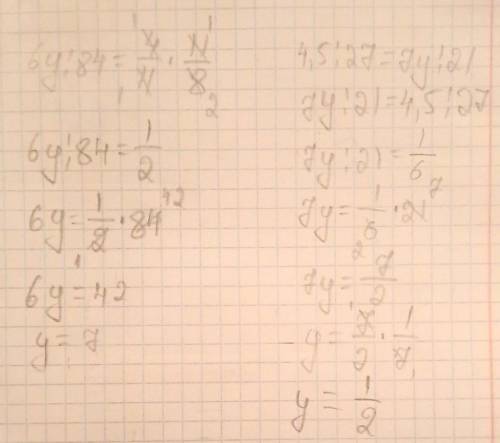 6y:84=4/11·11/8 1 1 1 2
6y:84=1/2
6y=1/2·84 42 1
6y=42
y=7
4,5:27=7y:21
7y:21=4,5:27
7y:21=1/6
7y=1/6·21 7 2
7y=7/2
y=7/2·1/7 1 1
y=1/2